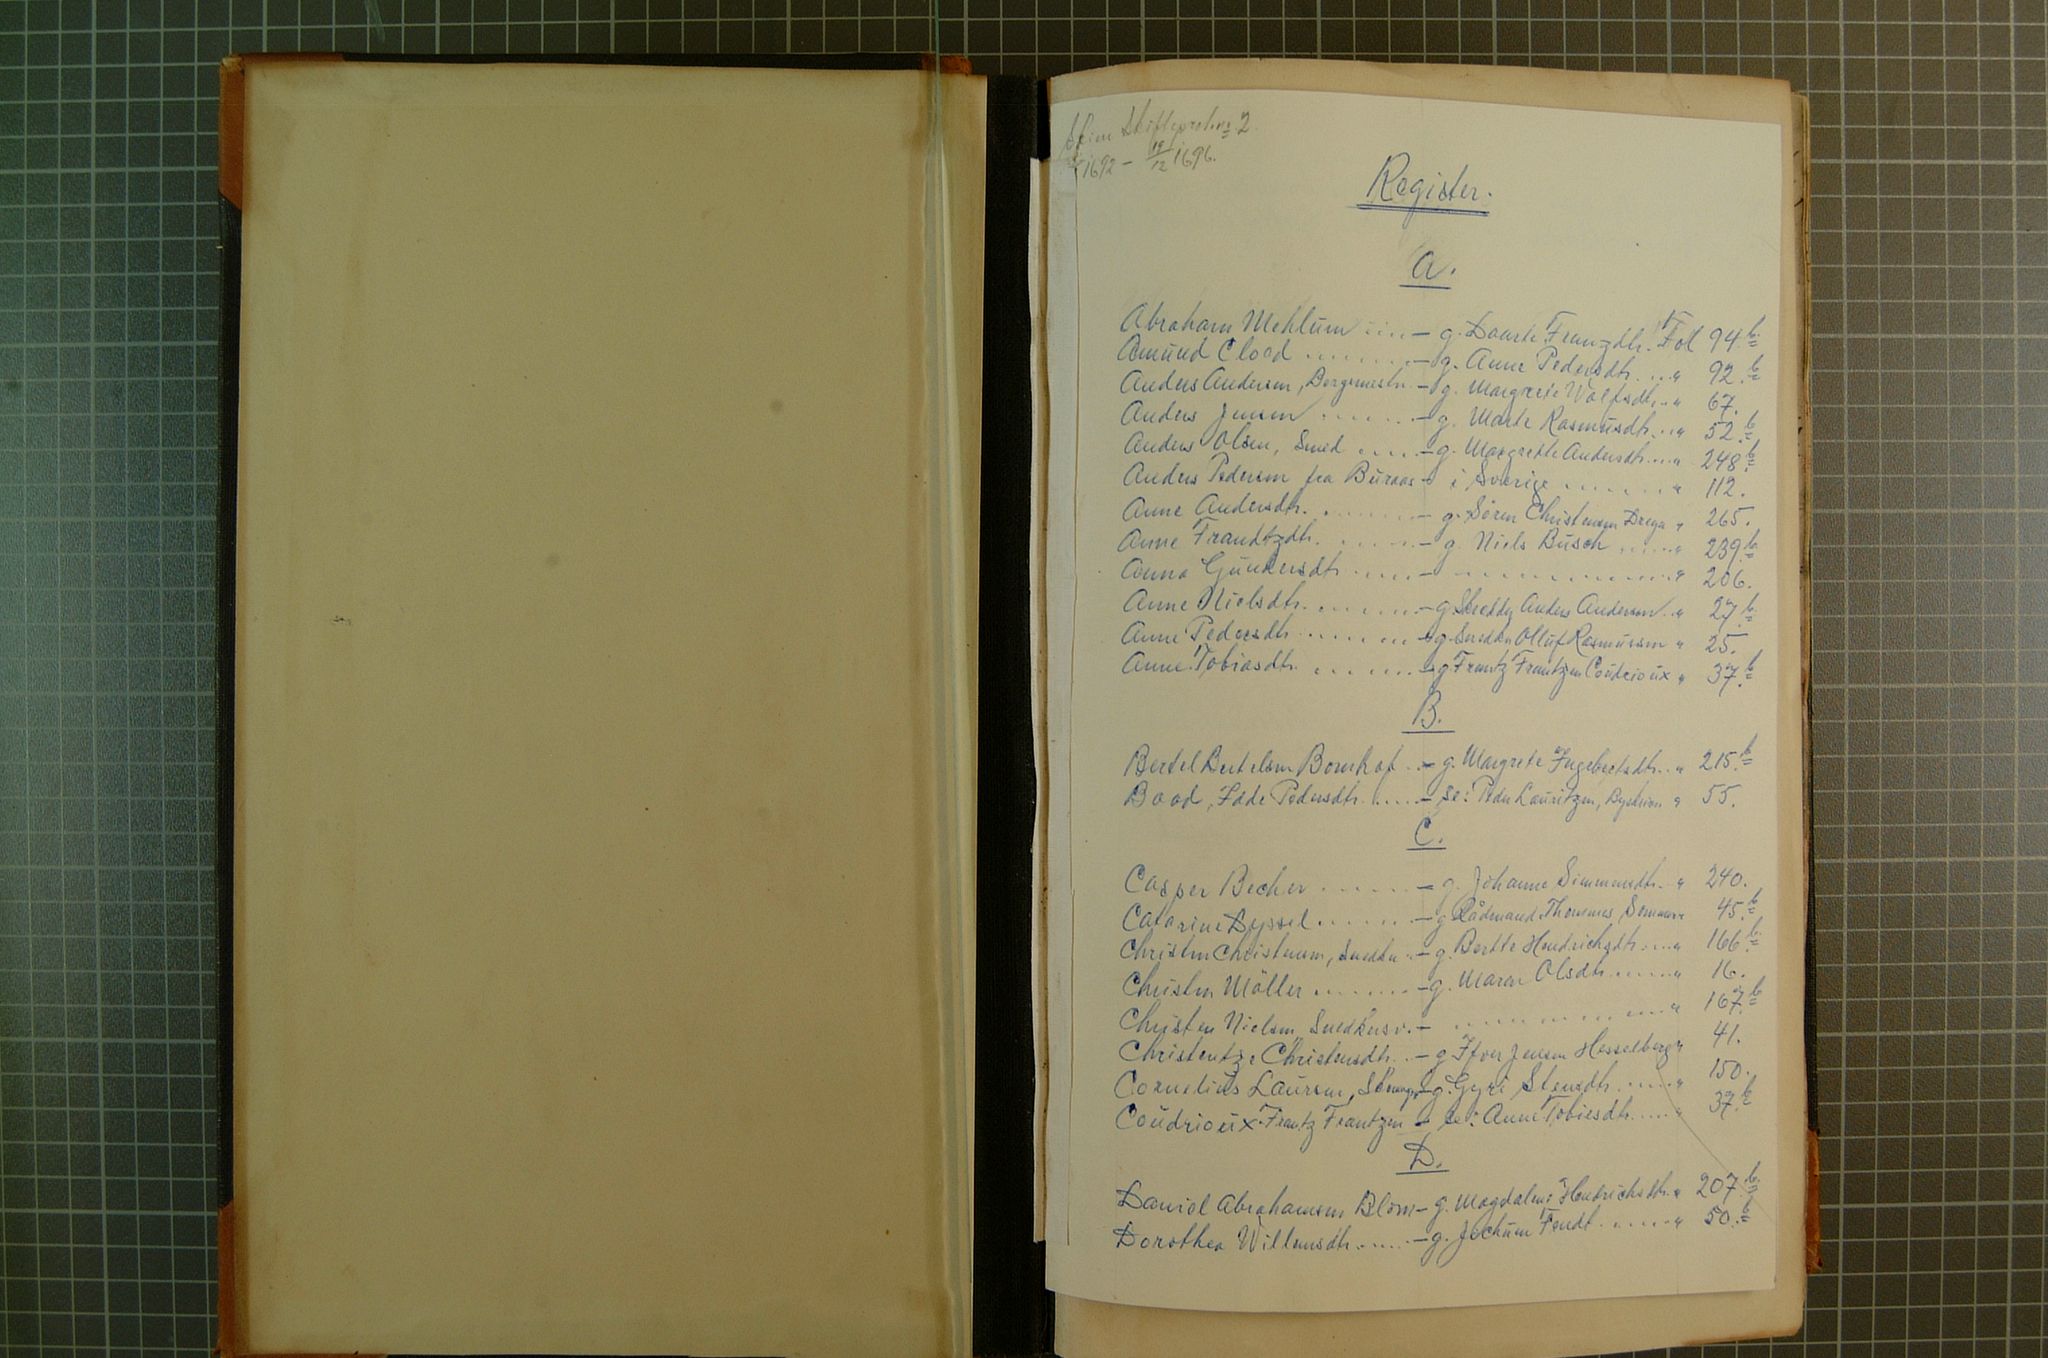 Skifteprot. no 2
1692 – 19/12 1696.
Register.
A.
Abraham Mehlum ..... – g. Daarte Franzdtr. Fol 94.b
Amund Clood ........ – g. Anne Pedersdtr. ... " 92.b
Anders Andersen, Borgermestr. – g. Margrete Wolfsdtr. .. " 67.
Anders Jensen ........ – g. Marte Rasmusdtr. .. " 52.b
Anders Olsen, Smed .... – g. Margrethe Andersdtr. ... " 248.b
Anders Pedersen fra Buraas – i Sverige ........ " 112.
Anne Andersdtr. ........ – g. Søren Christensen Dreya " 265.
Anne Frandtzdtr. ........ – g. Niels Busch ...... " 239.b
Anna Gundersdtr. ..... – ............. " 206.
Anne Nielsdtr. ........ – g. Skredder Anders Andersen .. " 27.b
Anne Pedersdtr. ........ – g. Snedker Olluf Rasmussen " 25.
Anne Tobiasdtr. ....... – g. Frantz Frantzen Coudrioux " 37.b
B.
Bertel Bertelsen Bomhof .. – g. Margrete Ingebretsdtr. .. " 215.b
Bood, Idde Pedersdtr. ..... – se: Peder Lauritzen, Byskriver " 55.
C.
Casper Becher ....... – g. Johanne Simmensdtr. .. " 240.
Catarine Dyssel ....... – g. Rådmand Thommes Sommer " 45.b
Christen Christensen, Snedker .. – g. Berthe Hendrichsdtr. .... " 166.b
Christen Möller ........ – g. Maren Olsdtr. ...... " 16.
Christen Nielsen, Snedkersv. – ............. " 167.b
Christentze Christensdtr. .. – g. Ifver Jensen Hesselberg " 41.
Cornelius Laursen, – g. Gyri Stensdtr. ..... " 150.
Coudrioux Frantz Frantzen – se: Anne Tobiesdtr. ..... " 37.b
D.
Daniel Abrahamsen Blom – g. Magdalene Hendrichsdtr. " 207.b
Dorothea Willumsdtr. ..... – g. Jochum Fendt ...... " 50.b